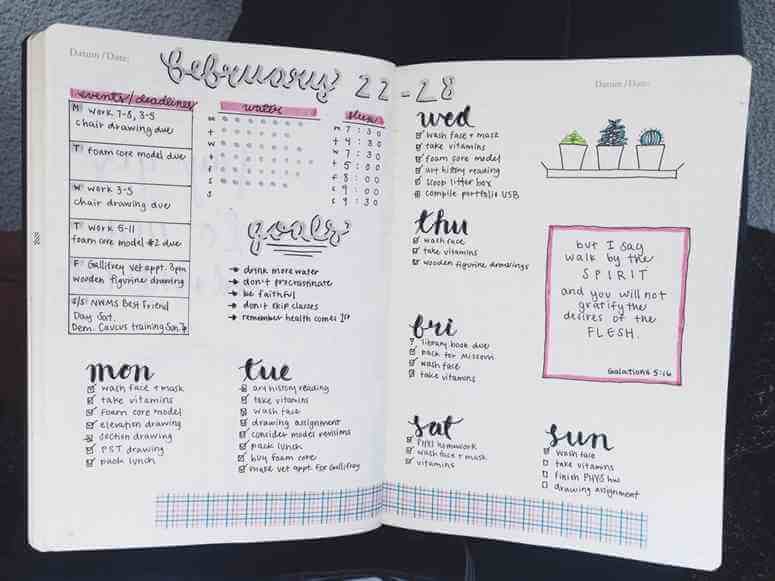 Datum / Date:
february 22-28
Datum / Date:
events/deadlines
M work 7-8, 3-5
chair drawing due
T foam core model due
W work 3-5
chair drawing due
T work 5-11
foam core model #2 due
F Gallifrey vet appt. 3pm
wooden figurine drawing
S/S NWMS Best Friend
Day Sat.
Dem. Caucus training Sun.
water
m
t
w
t
f
s
s
sleep
m 7:30
t 4:30
w 7:30
t 5:00
f 8:00
s 9:00
s 9:30
goals
→ drink more water
→ don't procrastinate
→ be faithful
→ don't skip classes
→ remember health comes 1st
mon
wash face + mask
take vitamins
foam core model
elevation drawing
section drawing
PST drawing
pack lunch
tue
art history reading
take vitamins
wash face
drawing assignment
consider model revisions
pack lunch
buy foam core
make vet appt. for Gallifrey
wed
wash face + mask
take vitamins
foam core model
art history reading
scoop litter box
compile portfolio USB
thu
wash face
take vitamins
wooden figurine drawings
fri
library book due
pack for Missouri
wash face
take vitamins
sat
PHYS homework
wash face + mask
vitamins
sun
wash face
take vitamins
finish PHYS hw
drawing assignment
but I say
walk by the
SPIRIT
and you will not
gratify the
desires of the
FLESH.
Galatians 5:16